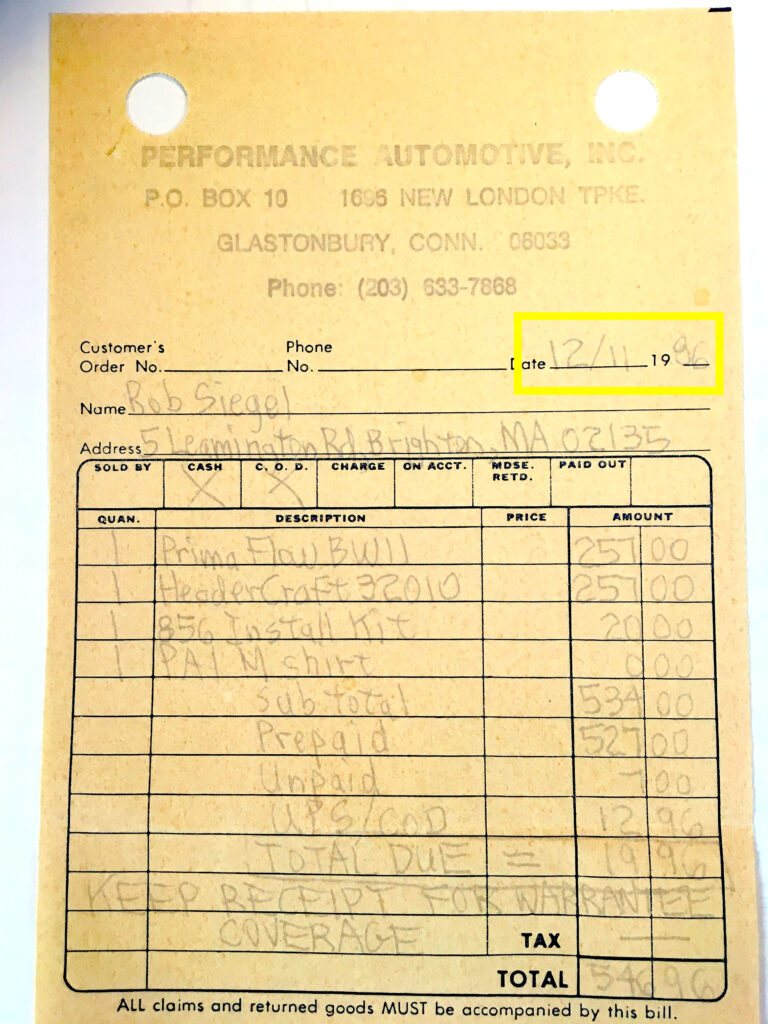 PERFORMANCE AUTOMOTIVE, INC.
P.O. BOX 10 1696 NEW LONDON TPKE.
GLASTONBURY, CONN. 06033
Phone: (203) 633-7868
Customer's Order No. Phone No. Date 12/11 19 96
Name Rob Siegel
Address 5 Leamington Rd, Brighton, MA 02135
SOLD BY CASH C. O. D. CHARGE ON ACCT. MDSE. RETD. PAID OUT
X X
QUAN. DESCRIPTION PRICE AMOUNT
1 Prima Flow BW11 257 00
1 HeaderCraft 32010 257 00
1 856 Install Kit 20 00
1 PAI M shirt 0 00
Sub total 534 00
Prepaid 527 00
Unpaid 7 00
UPS/COD 12 96
TOTAL DUE = 19 96
KEEP RECEIPT FOR WARRANTEE
COVERAGE TAX —
TOTAL 546 96
ALL claims and returned goods MUST be accompanied by this bill.